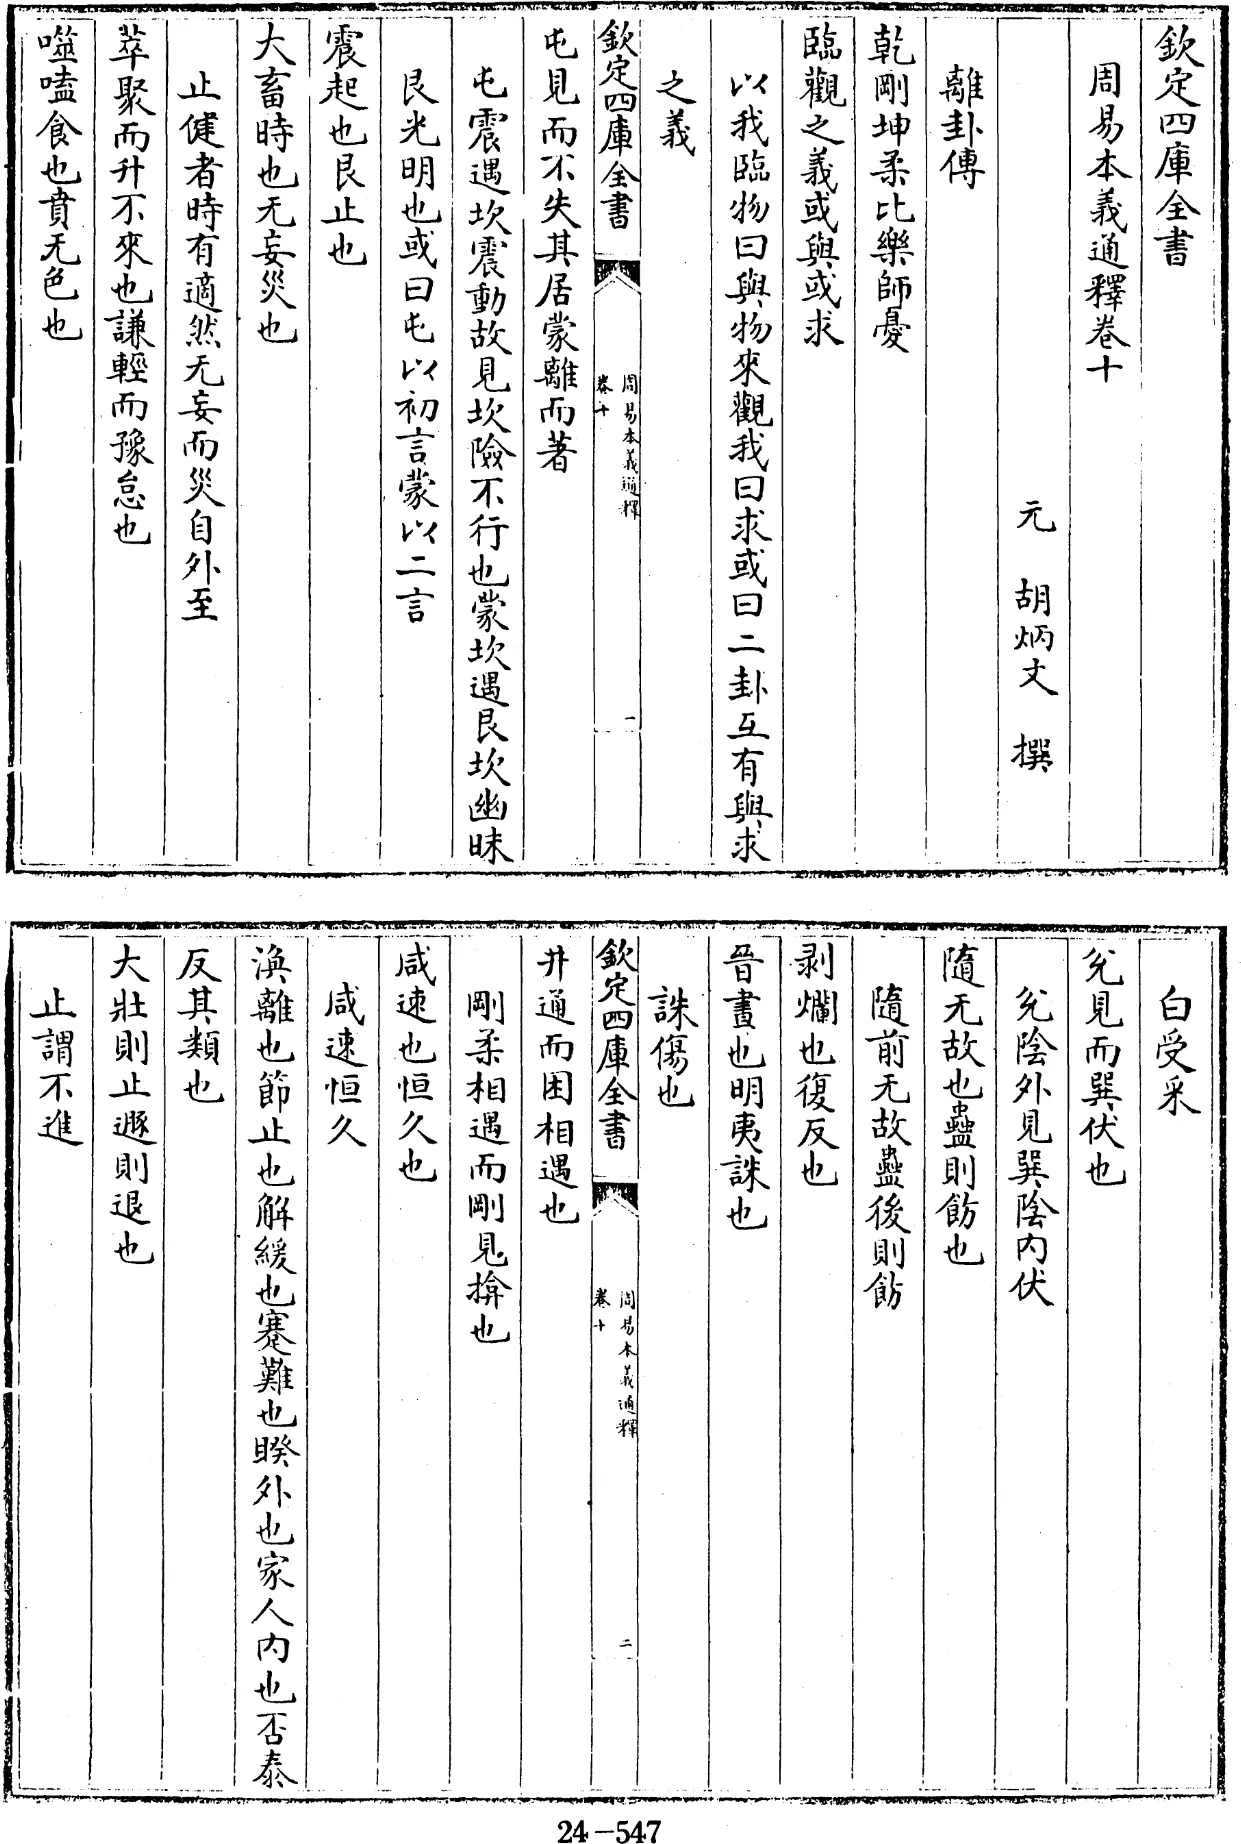 欽定四庫全書
周易本義通釋卷十
元　胡炳文　撰
離卦傳
乾剛坤柔比樂師憂
臨觀之義或與或求
以我臨物曰與物來觀我曰求或曰二卦互有與求
之義
欽定四庫全書
周易本義通釋
卷十
一
屯見而不失其居蒙雜而著
屯震遇坎震動故見坎險不行也蒙坎遇艮坎幽昧
艮光明也或曰屯以初言蒙以二言
震起也艮止也
大畜時也无妄災也
止健者時有適然无妄而災自外至
萃聚而升不來也謙輕而豫怠也
噬嗑食也賁无色也
白受采
兌見而巽伏也
兌陰外見巽陰内伏
隨无故也蠱則飭也
隨前无故蠱後則飭
剥爛也復反也
晉晝也明夷誅也
誅傷也
欽定四庫全書
周易本義通釋
卷十
二
井通而困相遇也
剛柔相遇而剛見揜也
咸速也恒久也
咸速恒久
渙離也節止也解緩也蹇難也睽外也家人内也否泰
反其類也
大壯則止遯則退也
止謂不進
24-547